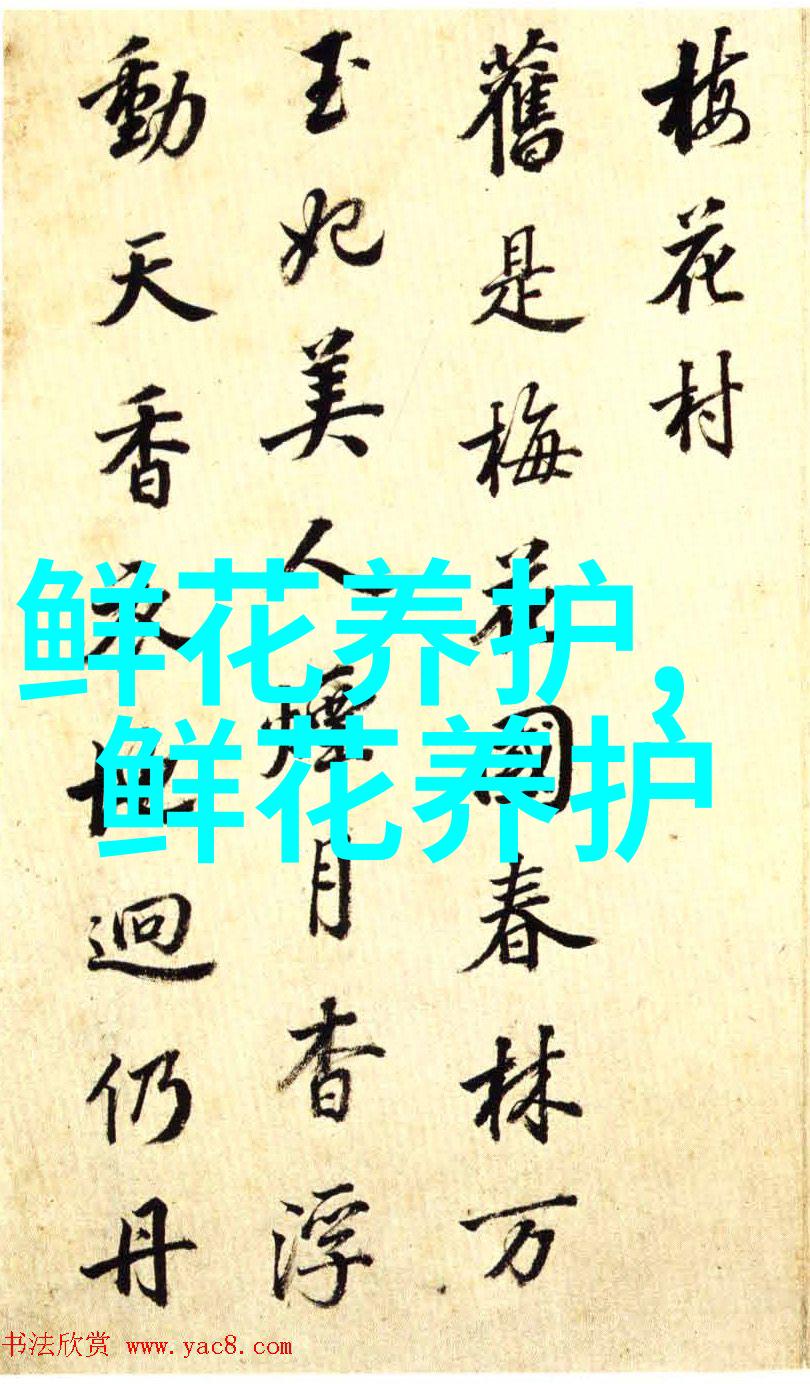 梅花村
舊是梅花國春林万
玉妃美人煙月杳浮
動天香來世迥仍丹
鲜花养护,
鲜花养护
书法欣赏 www.yac8.com